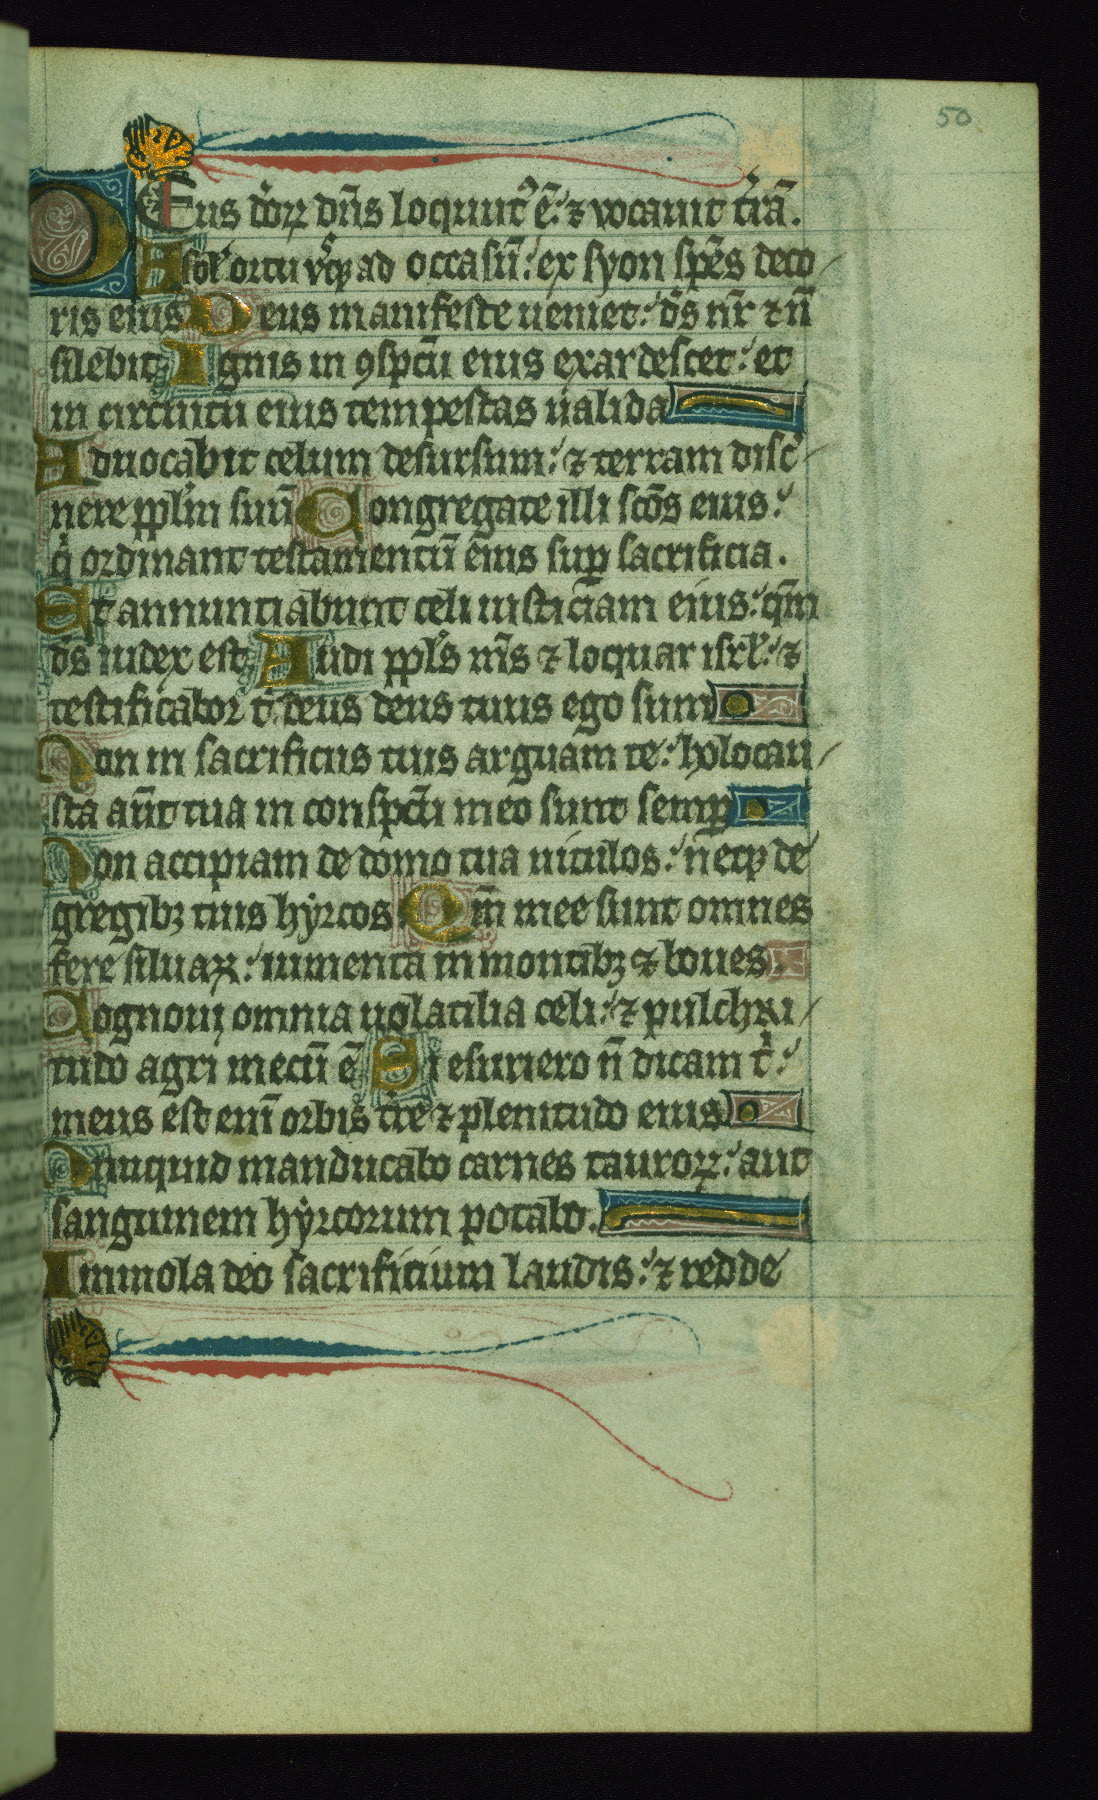 50
DEus dōꝝ dn̄s locutꝰ ē: ⁊ vocauit tr̄ā.
A sol̓ ortu vsqꝫ ad occasū: ex syon spēs deco
ris eius Deus manifeste ueniet: ds̄ nr̄ ⁊ n̄
silebit Ignis in ꝯspc̄tu eius exardescet: et
in circuitu eius tempestas ualida
Aduocabit celum desursum: ⁊ terram disc̓
nere ppl̓m suū Congregate illi scōs eius:
q̇ ordinant testamentū eius suꝑ sacrificia.
Et annuntiabunt celi iusticiam eius: qm̄
ds̄ iudex est Audi ppl̓s ms̄ ⁊ loquar isrl̓: ⁊
testificabor t̓ deus deus tuus ego sum
Non in sacrificiis tuis arguam te: holocau
sta aūt tua in conspc̄tu meo sunt semꝑ
Non accipiam de domo tua uitulos: neqꝫ de
gregibꝫ tuis hyrcos Qm̄ mee sunt omnes
fere siluaꝝ: iumenta in montibꝫ ⁊ boues
Cognoui omnia uolatilia celi: ⁊ pulchri
tudo agri mecū ē Si esuriero n̄ dicam t̓:
meus est eni̅ orbis tr̄e ⁊ plenitudo eius
Nunquid manducabo carnes tauroꝝ: aut
sanguinem hyrcorum potabo.
Immola deo sacrificium laudis: ⁊ redde